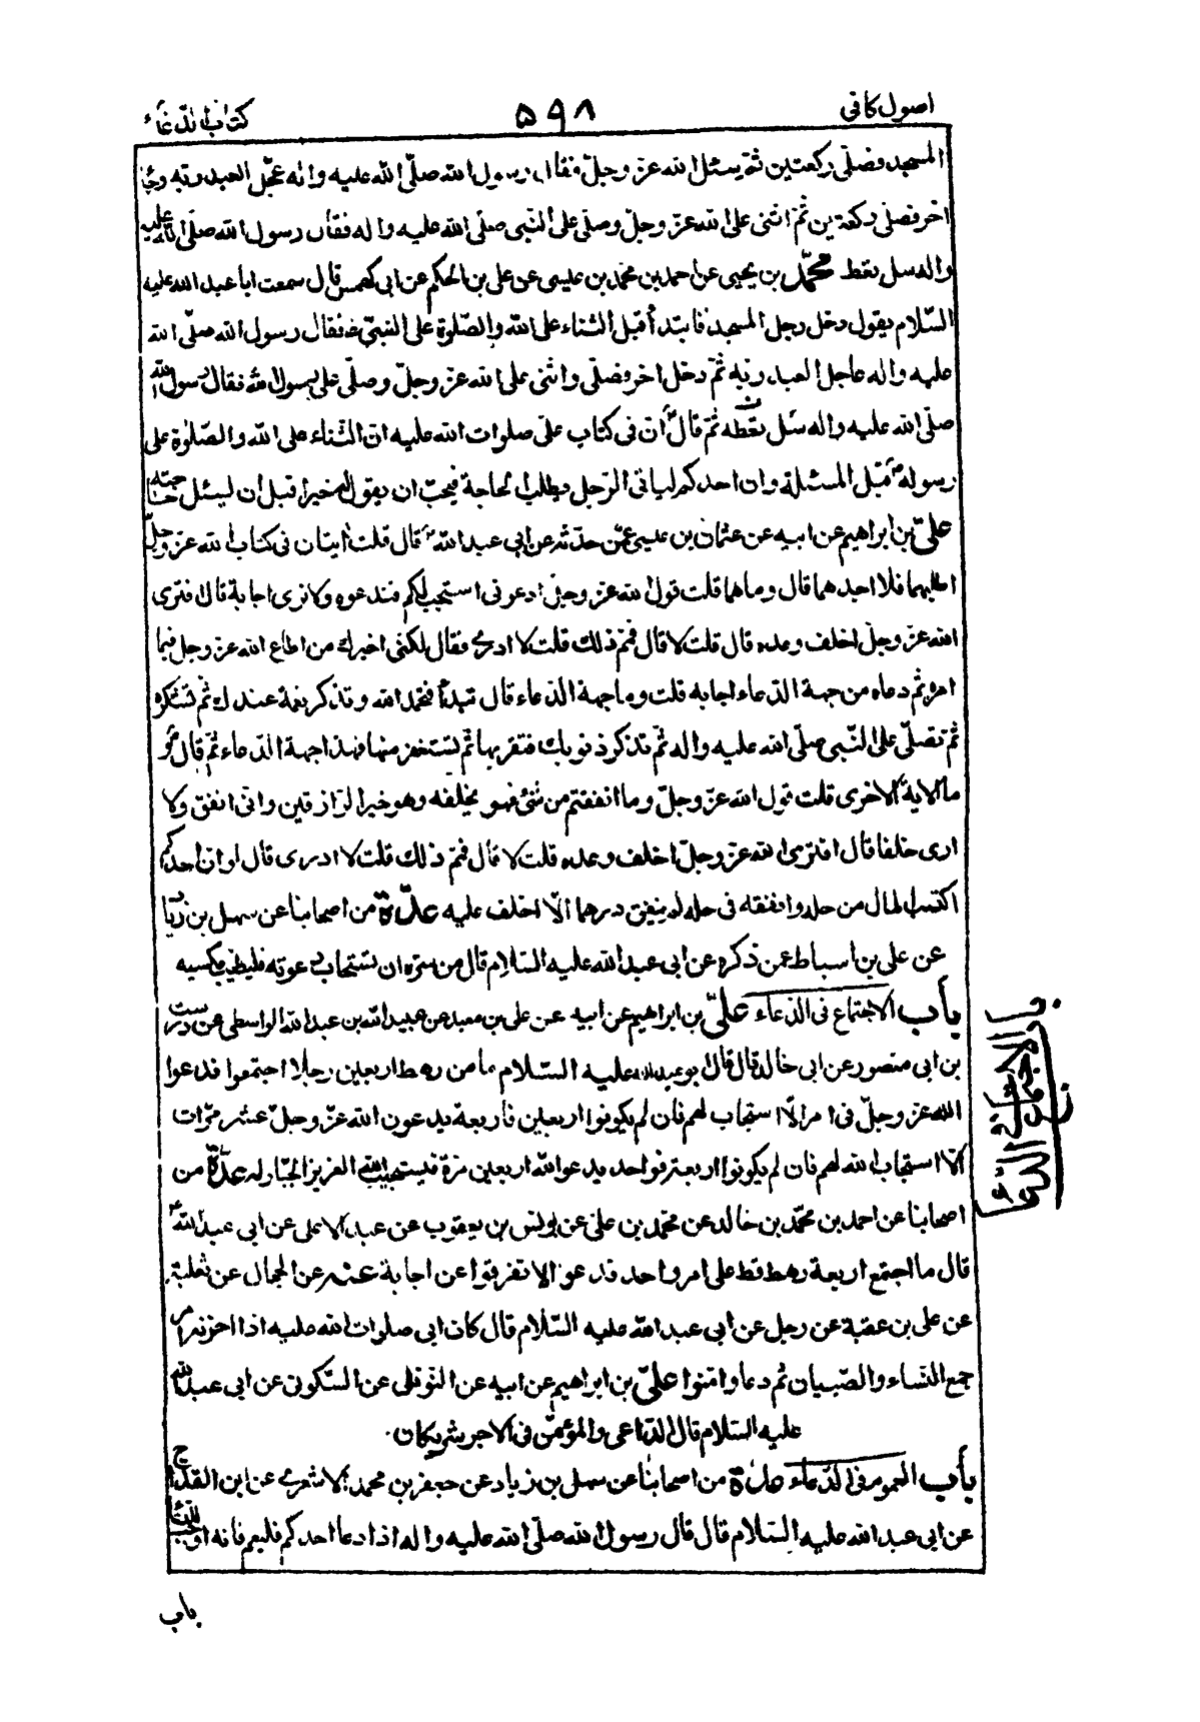 اصول كافى
۵۹۸
كتاب الدعاء
المسجد وفصلّى ركعتين ثمّ يسئل الله عز وجلّ فقال رسول الله صلّى الله عليه واله عجّل العبد ربّه وجاء
اخر فصلى ركعتين ثمّ اثنى على الله عزّ وجلّ وصلى على النّبى صلّى الله عليه واله فقال رسول الله صلى الله عليه
واله سل تعط محمّد بن يحيى عن احمد بن محمّد بن عيسى عن على بن الحكم عن ابى كهمس قال سمعت ابا عبد الله عليه
السّلام يقول دخل رجل المسجد فابتدأ قبل الثناء على الله والصّلوة على النبىّ فقال رسول الله صلّى الله
عليه واله عاجل العبد ربّه ثمّ دخل اخر فصلّى واثنى على الله عزّ وجلّ وصلّى على رسول الله فقال رسول الله
صلّى الله عليه واله سل تعطه ثمّ قال ان فى كتاب على صلوات الله عليه انّ الثناء على الله والصّلوة على
رسوله قبل المسئلة وان احدكم لياتى الرّجل يطلب الحاجة فيحبّ ان يقول له خيرا قبل ان يسئل حاجته
علىّ بن ابراهيم عن ابيه عن عثمان بن عيسى عمّن حدّثه عن ابى عبد الله قال قلت ايتان فى كتاب الله عز وجلّ
اطلبهما فلا اجدهما قال وما هما قلت قول الله عز وجل ادعونى استجب لكم فندعوه ولا نرى اجابة قال فترى
الله عزّ وجلّ اخلف وعده قال قلت لا قال فممّ ذلك قلت لا ادرى فقال لكنّى اخبرك من اطاع الله عز وجل فيما
امره ثم دعاه من جهة الدّعاء اجابه قلت وما جهة الدّعاء قال تبدأ فتحمد الله وتذكر نعمه عندك ثم تشكره
ثم تصلّى على النّبى صلّى الله عليه واله ثمّ تذكر ذنوبك فتقرّ بها ثم تستغفر منها فهذا جهة الدّعاء ثمّ قال و
ما الاية الاخرى قلت قول الله عزّ وجلّ وما انفقتم من شئ فهو يخلفه وهو خير الرّازقين وانى انفق ولا
ارى خلفا قال افترى الله عزّ وجلّ اخلف وعده قلت لا قال فممّ ذلك قلت لا ادرى قال لو ان احدكم
اكتسب المال من حله وانفقه فى حله لم ينفق درهما الّا اخلف عليه عدّة من اصحابنا عن سهل بن زياد
عن على بن اسباط عمن ذكره عن ابى عبد الله عليه السّلام قال من سرّه ان تستجاب دعوته فليطيب مكسبه
باب الاجتماع فى الدّعاء علىّ بن ابراهيم عن ابيه عن على بن معبد عن عبيد الله بن عبد الله الواسطى عن درست
بن ابى منصور عن ابى خالد قال قال ابو عبد الله عليه السّلام ما من رهط اربعين رجلا اجتمعوا فدعوا
الله عز وجلّ فى امر الّا استجاب لهم فان لم يكونوا اربعين فاربعة يدعون الله عزّ وجلّ عشر مرّات
الّا استجاب الله لهم فان لم يكونوا اربعة فواحد يدعو الله اربعين مرّة فيستجيب الله العزيز الجبّار له عدّة من
اصحابنا عن احمد بن محمّد بن خالد عن محمّد بن علىّ عن يونس بن يعقوب عن عبد الاعلى عن ابى عبد الله
قال ما اجتمع اربعة رهط قط على امر واحد فدعوا الا تفرقوا عن اجابة عنه عن الحجال عن ثعلبة
عن على بن عقبة عن رجل عن ابى عبد الله عليه السّلام قال كان ابى صلوات الله عليه اذا احزنه امر
جمع النّساء والصّبيان ثم دعا وامّنوا علىّ بن ابراهيم عن ابيه عن النّوفلى عن السّكونى عن ابى عبد الله
عليه السّلام قال الدّاعى والمؤمّن فى الاجر شريكان
باب العموم فى الدّعاء عدّة من اصحابنا عن سهل بن زياد عن جعفر بن محمد الاشعرى عن ابن القدّاح
عن ابى عبد الله عليه السّلام قال قال رسول الله صلّى الله عليه واله اذا دعا احدكم فليعمّ فانه اوجب للدّعاء
باب
باب الاجتماع فى الدعاء